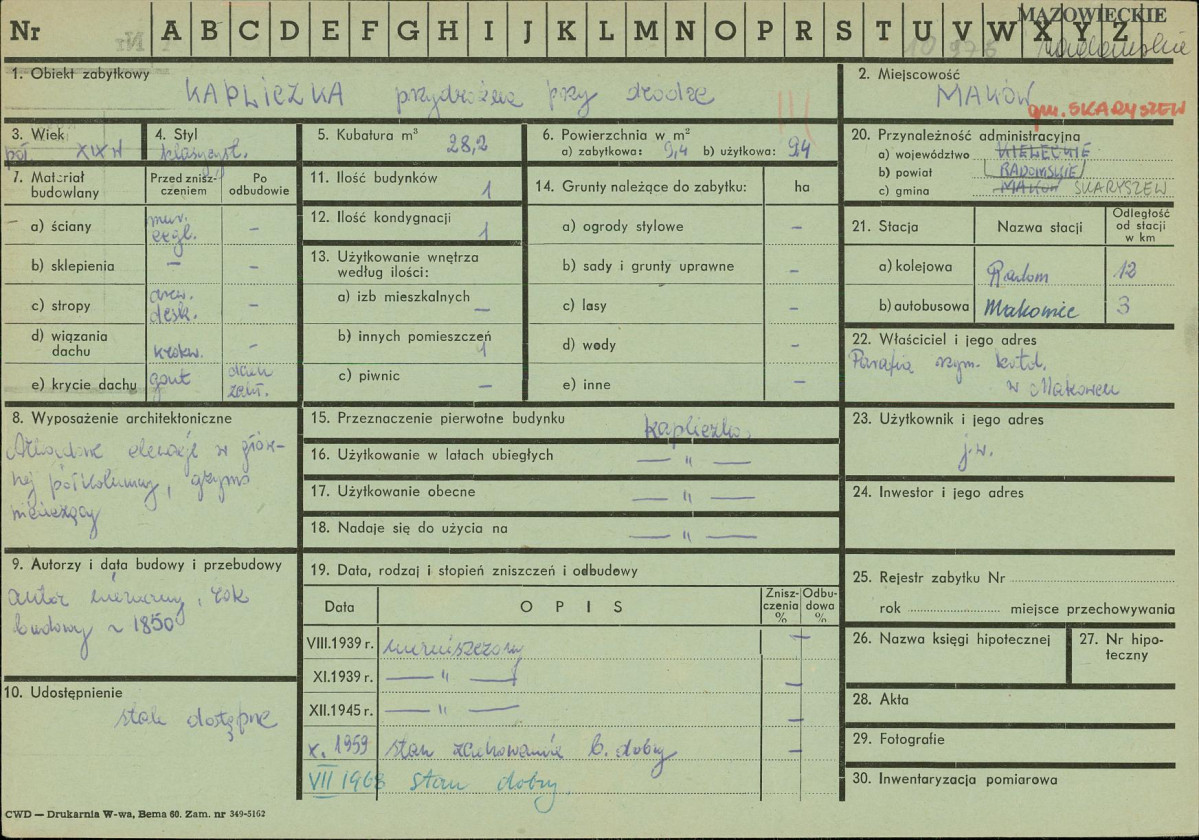 Nr A B C D E F G H I J K L M N O P R S T U V W X Y Z
MAZOWIECKIE
radomskie
1. Obiekt zabytkowy
KAPLICZKA przydrożna przy drodze
2. Miejscowość
MAKÓW
gm. SKARYSZEW
3. Wiek
poł. XIX w
4. Styl
klasycyst.
5. Kubatura m³
28,2
6. Powierzchnia w m²
a) zabytkowa: 9,4 b) użytkowa: 9,4
20. Przynależność administracyjna
a) województwo KIELECKIE
b) powiat RADOMSKIE
c) gmina MAKÓW SKARYSZEW
7. Materiał budowlany
Przed zniszczeniem
Po odbudowie
a) ściany mur. cegl. –
b) sklepienia – –
c) stropy drew. desk. –
d) wiązania dachu krokw. –
e) krycie dachu gont
11. Ilość budynków 1
12. Ilość kondygnacji 1
13. Użytkowanie wnętrza według ilości:
a) izb mieszkalnych –
b) innych pomieszczeń 1
c) piwnic –
14. Grunty należące do zabytku: ha
a) ogrody stylowe –
b) sady i grunty uprawne –
c) lasy –
d) wody –
e) inne –
21. Stacja
Nazwa stacji
Odległość od stacji w km
a) kolejowa Radom 12
b) autobusowa Makowiec 3
22. Właściciel i jego adres
Parafia rzym. kat.
w Makowcu
8. Wyposażenie architektoniczne
Arkadowe elewacje w głów-
nej półkolumny, gzyms
wieńczący
15. Przeznaczenie pierwotne budynku kapliczka
16. Użytkowanie w latach ubiegłych — " —
17. Użytkowanie obecne — " —
18. Nadaje się do użycia na — " —
23. Użytkownik i jego adres
j.w.
24. Inwestor i jego adres
9. Autorzy i data budowy i przebudowy
autor nieznany, rok
budowy ~ 1850
10. Udostępnienie
stale dostępne
19. Data, rodzaj i stopień zniszczeń i odbudowy
Data O P I S Zniszczenia % Odbudowa %
VIII.1939 r. niezniszczony –
XI.1939 r. — " — –
XII.1945 r. — " — –
X. 1959 stan zachowania b. dobry –
VII 1968 stan dobry.
25. Rejestr zabytku Nr
rok miejsce przechowywania
26. Nazwa księgi hipotecznej
27. Nr hipoteczny
28. Akta
29. Fotografie
30. Inwentaryzacja pomiarowa
CWD — Drukarnia W-wa, Bema 60. Zam. nr 349-5162